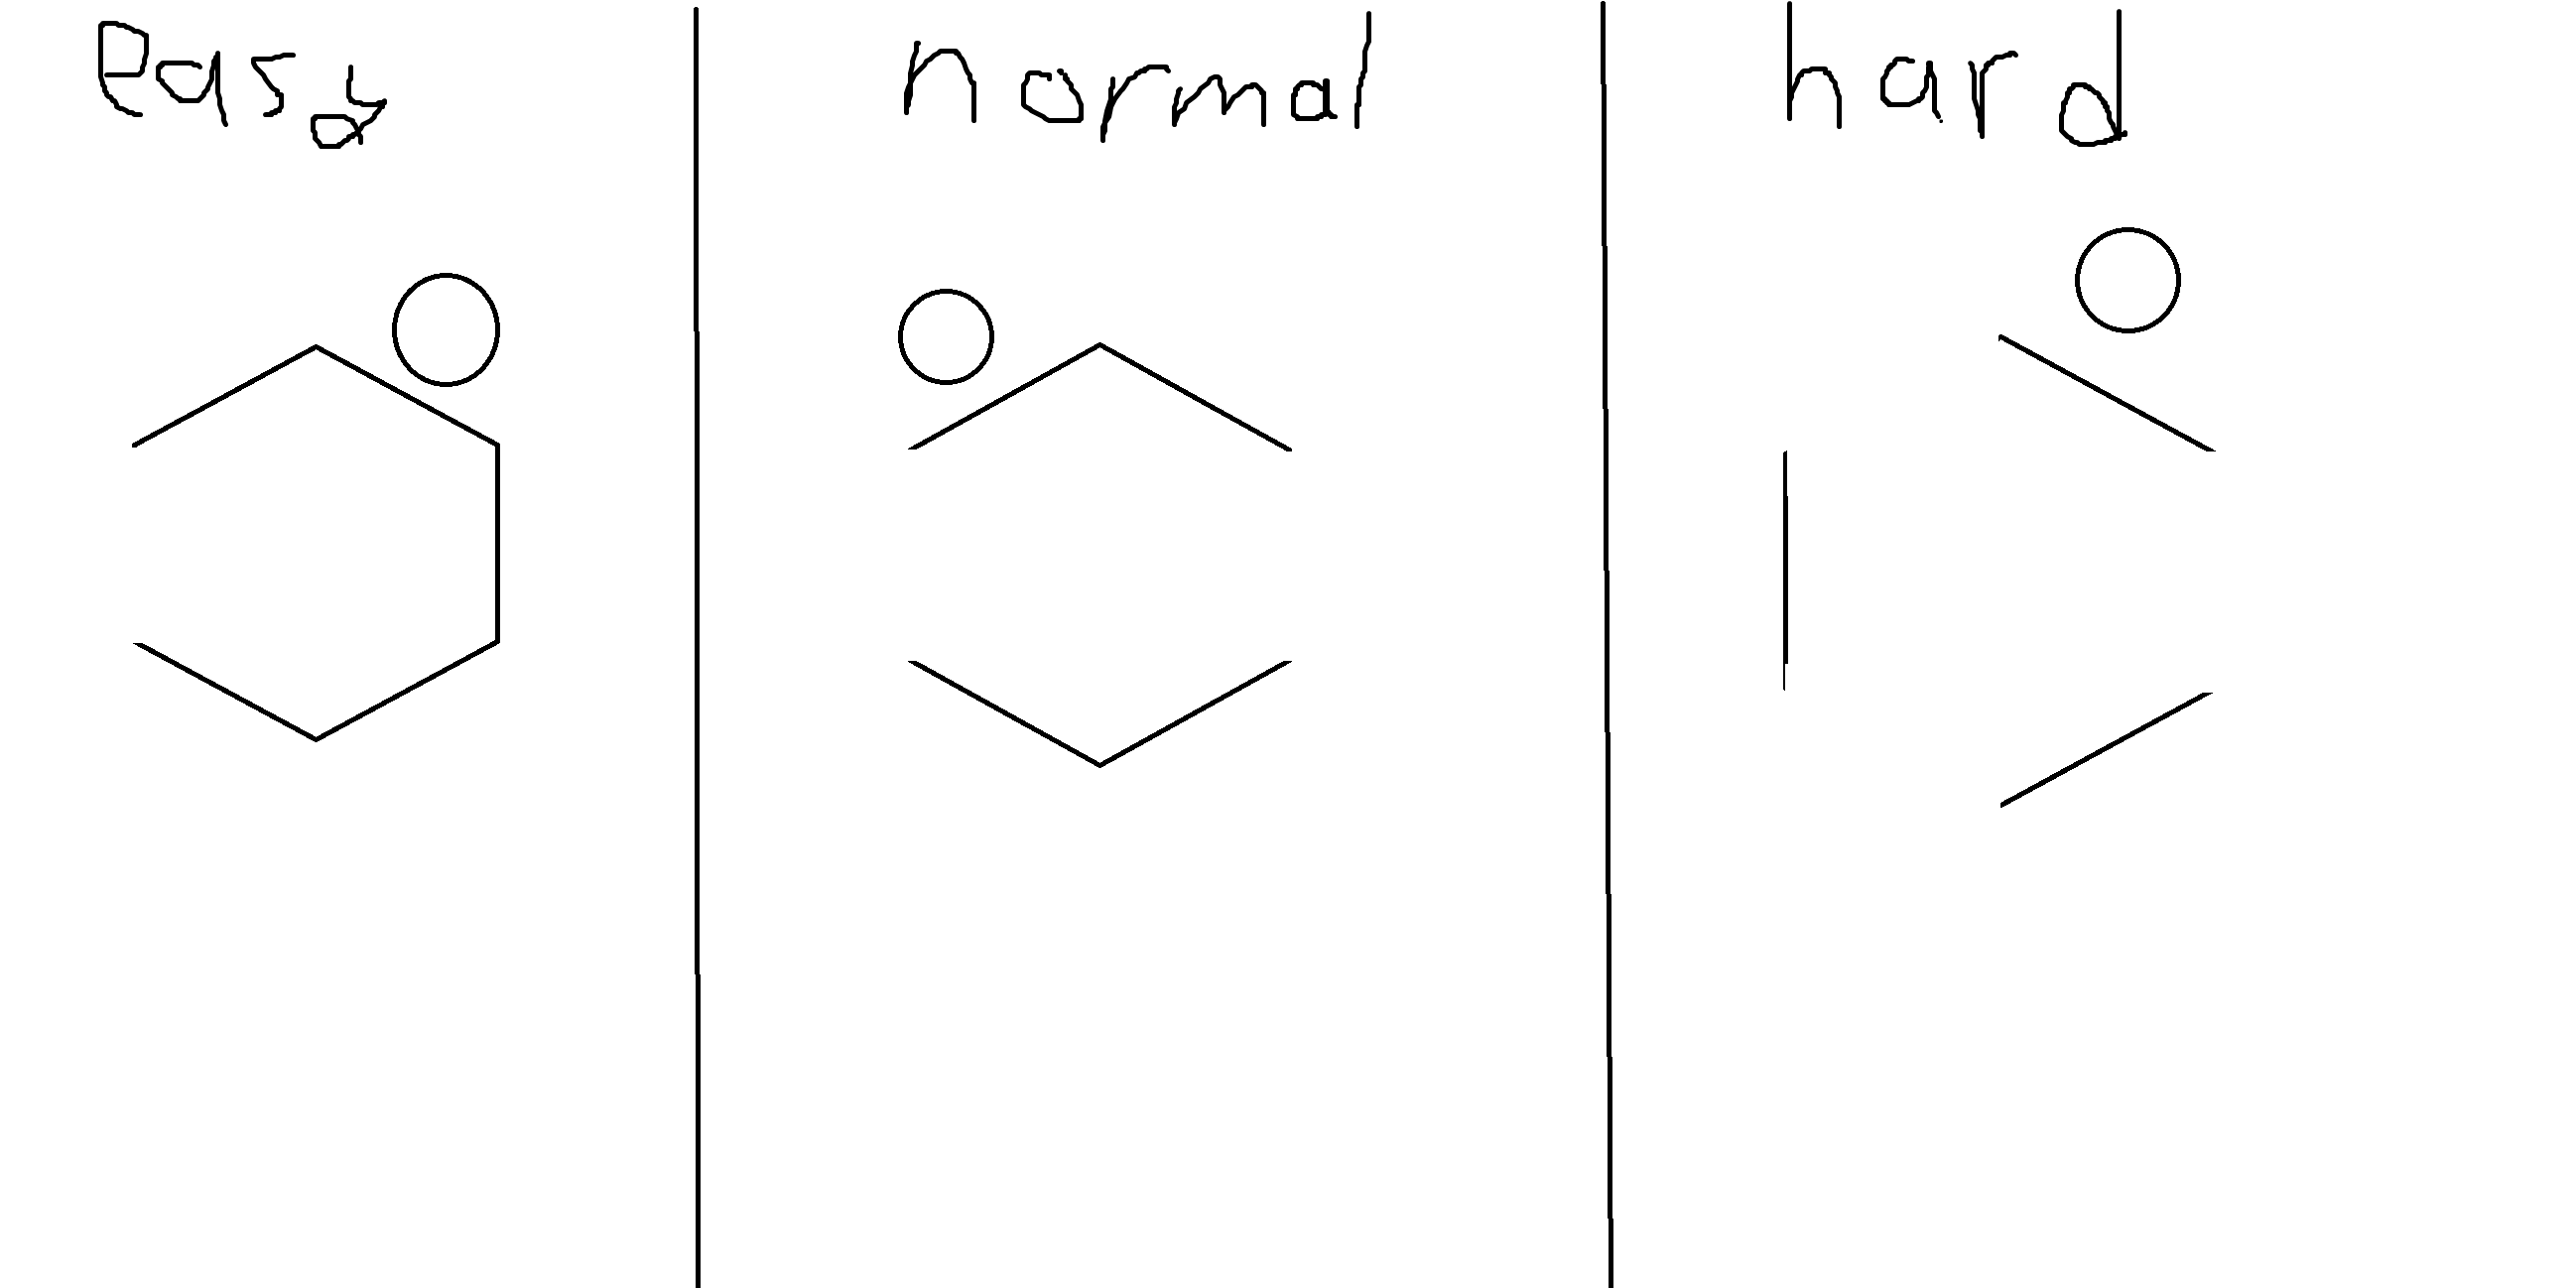 easy
normal
hard